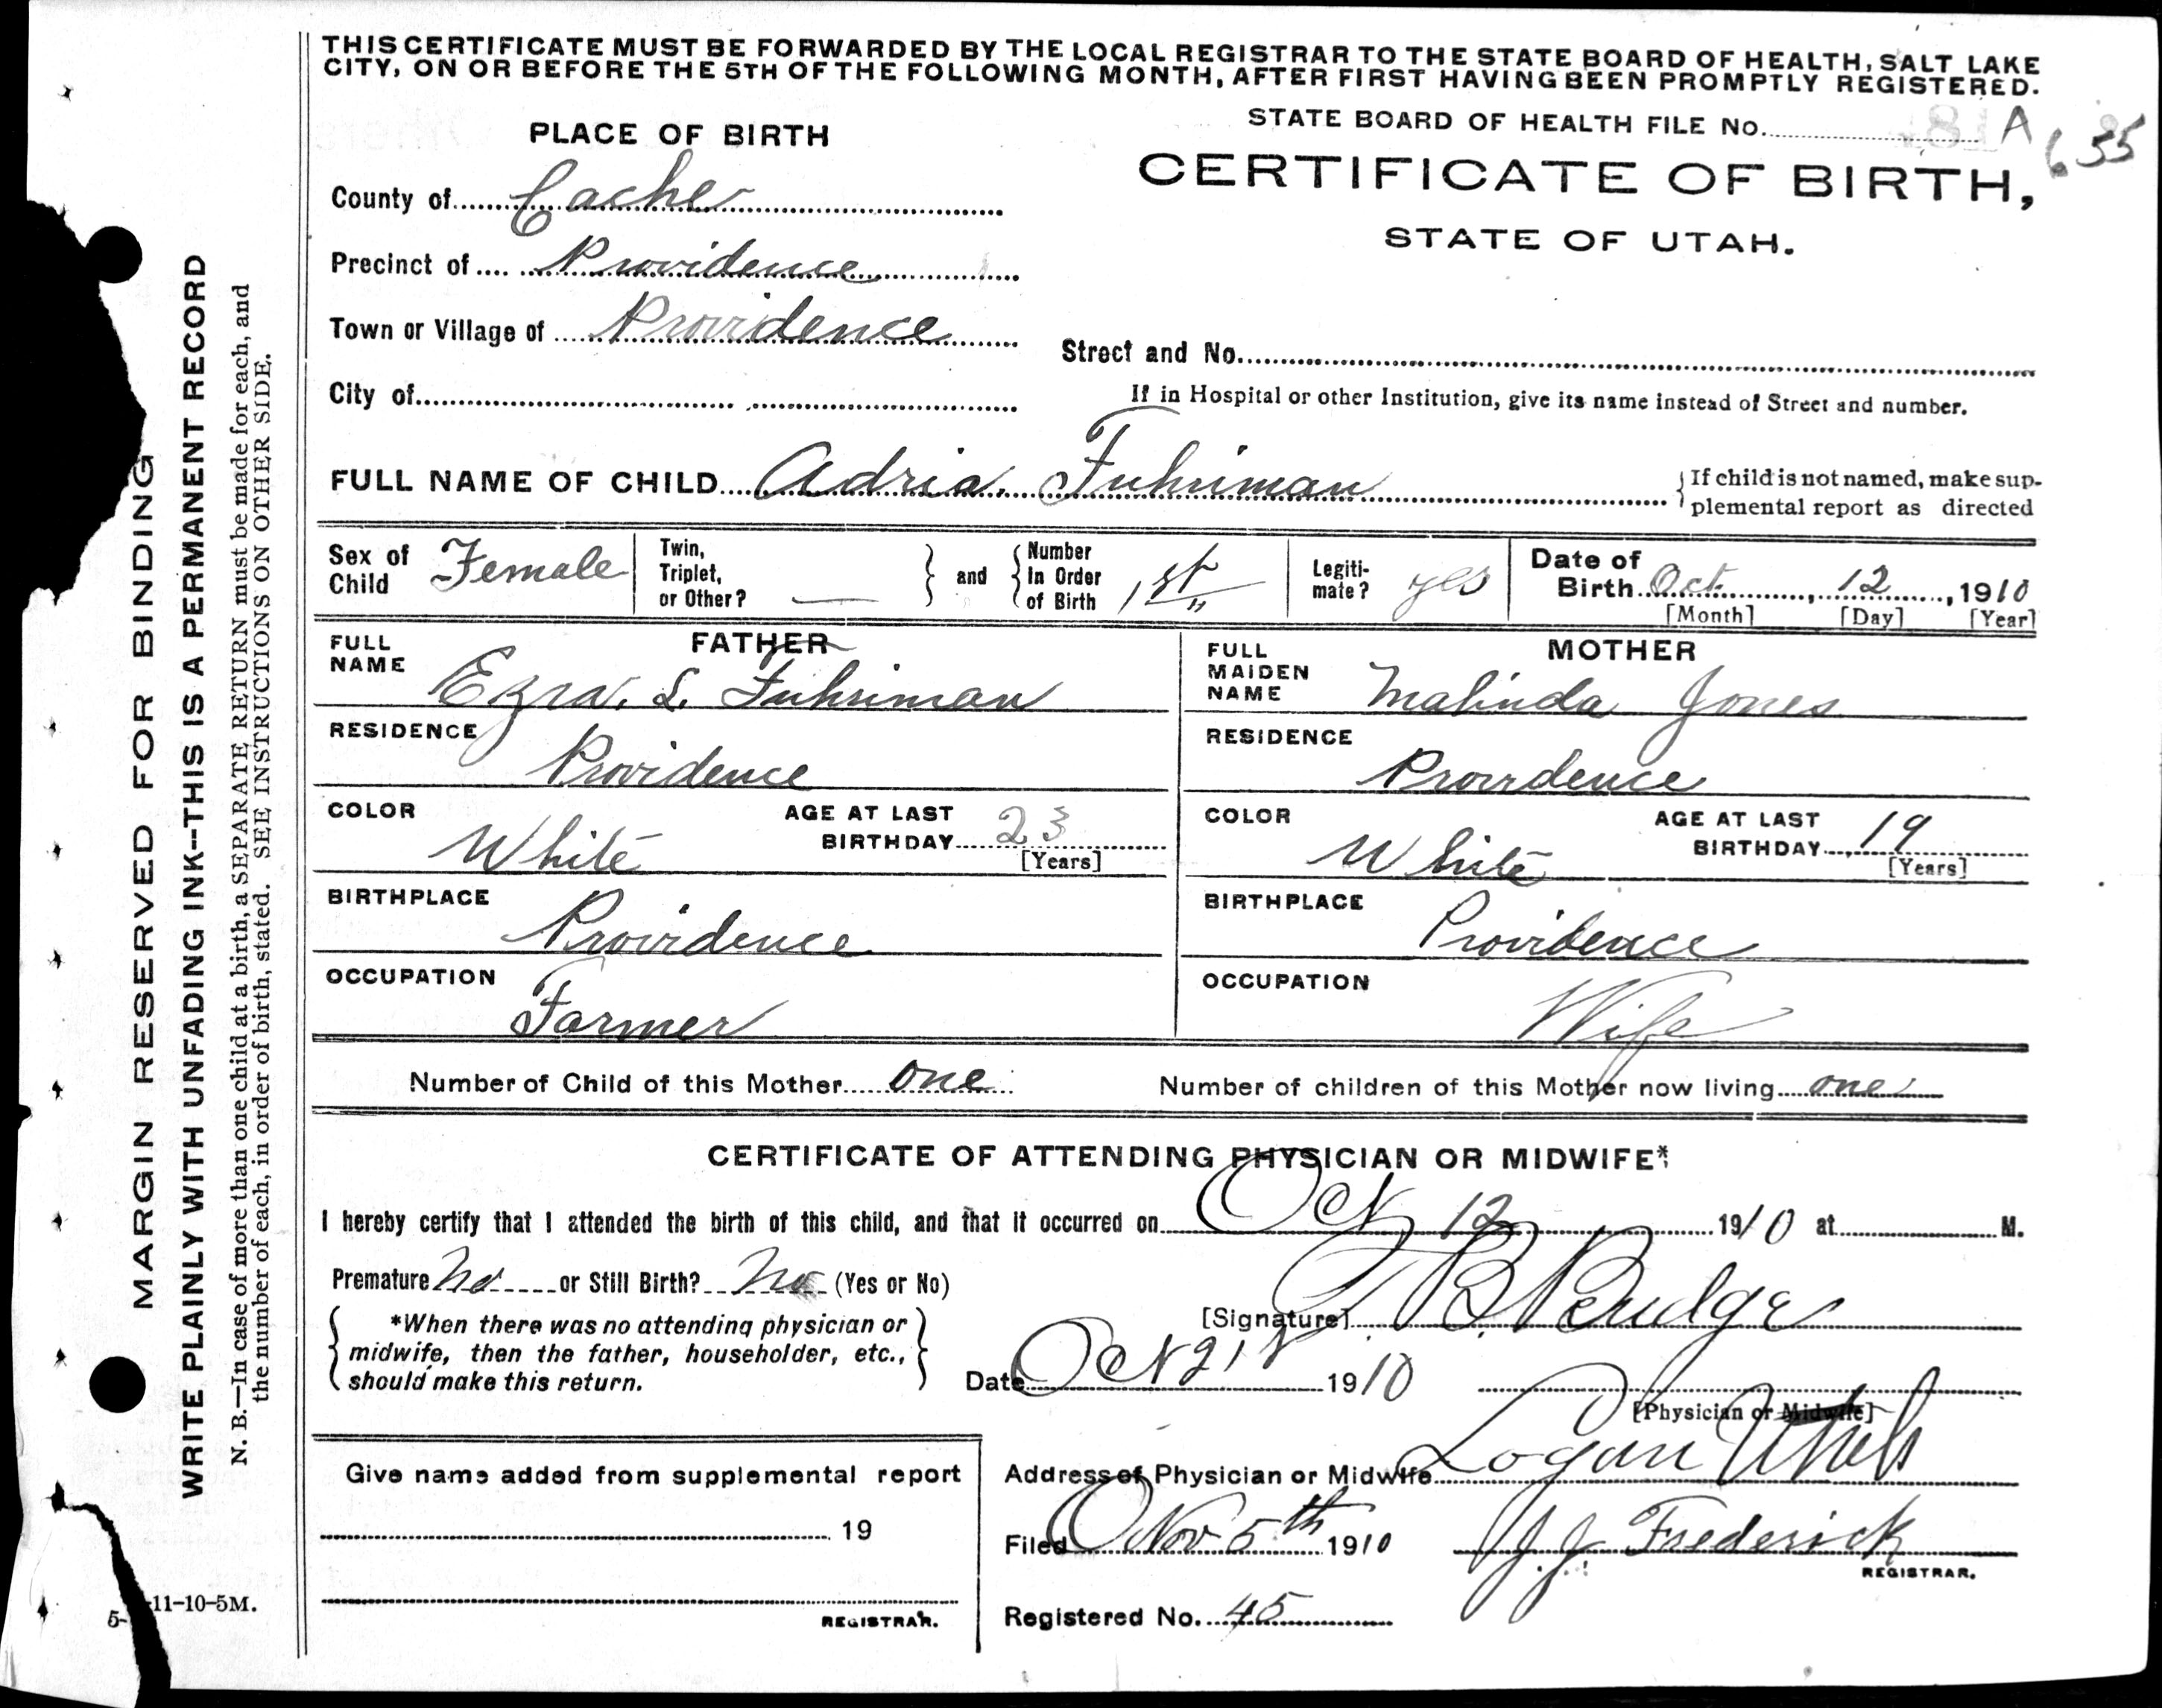 THIS CERTIFICATE MUST BE FORWARDED BY THE LOCAL REGISTRAR TO THE STATE BOARD OF HEALTH, SALT LAKE
CITY, ON OR BEFORE THE 5TH OF THE FOLLOWING MONTH, AFTER FIRST HAVING BEEN PROMPTLY REGISTERED.
STATE BOARD OF HEALTH FILE No. A 655
PLACE OF BIRTH
CERTIFICATE OF BIRTH,
STATE OF UTAH.
County of Cache
Precinct of Providence
Town or Village of Providence
Street and No.
City of
If in Hospital or other Institution, give its name instead of Street and number.
FULL NAME OF CHILD Adria. Fuhriman
If child is not named, make sup-
plemental report as directed
Sex of Child Female
Twin, Triplet, or Other? —
and Number In Order of Birth 1st
Legiti- mate? yes
Date of Birth Oct. 12, 1910
[Month] [Day] [Year]
FATHER
FULL NAME Ezra. L. Fuhriman
RESIDENCE Providence
COLOR White
AGE AT LAST BIRTHDAY 23
[Years]
BIRTHPLACE Providence
OCCUPATION Farmer
MOTHER
FULL MAIDEN NAME Malinda Jones
RESIDENCE Providence
COLOR White
AGE AT LAST BIRTHDAY 19
[Years]
BIRTHPLACE Providence
OCCUPATION Wife
Number of Child of this Mother one
Number of children of this Mother now living one
CERTIFICATE OF ATTENDING PHYSICIAN OR MIDWIFE*
I hereby certify that I attended the birth of this child, and that it occurred on Oct 12 1910 at M.
Premature No or Still Birth? No (Yes or No)
*When there was no attending physician or
midwife, then the father, householder, etc.,
should make this return.
[Signature] B Budge
Date Oct 21 1910
[Physician or Midwife]
Address of Physician or Midwife Logan Utah
Filed Nov 5th 1910
J. J. Frederick
REGISTRAR.
Registered No. 45
Give name added from supplemental report
19
REGISTRAR.
MARGIN RESERVED FOR BINDING
WRITE PLAINLY WITH UNFADING INK--THIS IS A PERMANENT RECORD
N. B.—In case of more than one child at a birth, a SEPARATE RETURN must be made for each, and
the number of each, in order of birth, stated. SEE INSTRUCTIONS ON OTHER SIDE.
5- 11-10-5M.